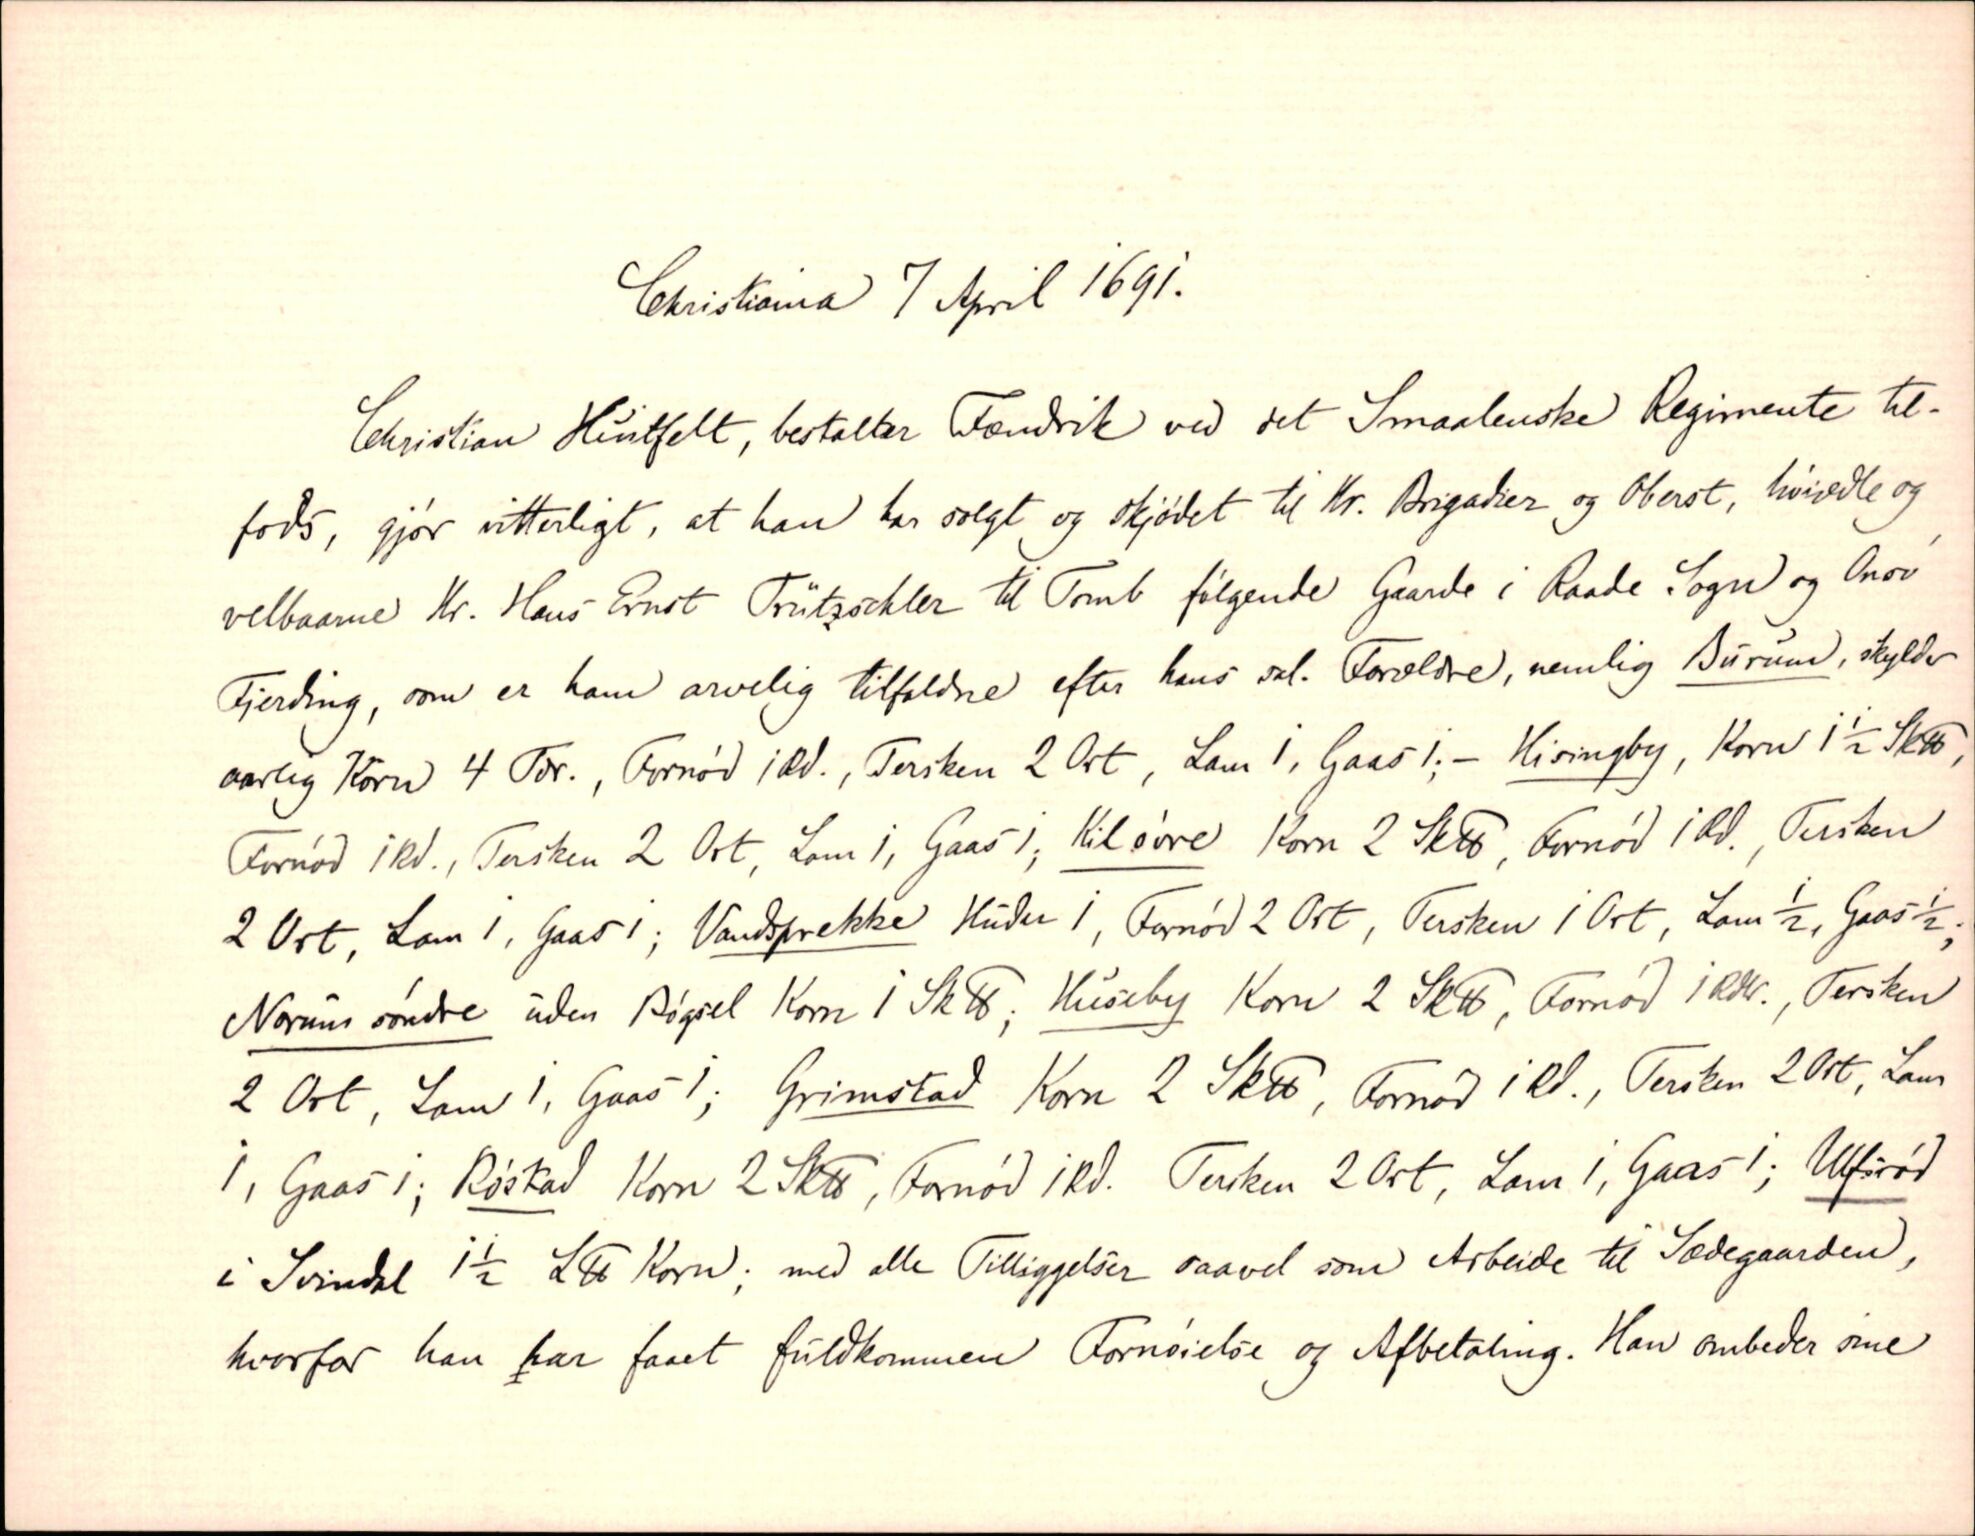 Christiania 7 April 1691.
Christian Huitfelt, bestalter Fændrik ved det Smaalenske Regimente til-
fods, gjør vitterligt, at han har solgt og skjødet til Hr. Brigadier og Oberst, høiædle og
velbaarne Hr. Hans Ernst Trützschler til Tomb følgende Gaarde i Raade Sogn og Onsø
Fjerding, som er ham arvelig tilfaldne efter hans sal. Forældre, nemlig Burum, skylder
aarlig Korn 4 Tdr., Fornød 1 Rd., Tersken 2 Ort, Lam 1, Gaas 1; - Hisingby, Korn 1 1/2 Sk℔,
Fornød 1 Rd., Tersken 2 Ort, Lam 1, Gaas 1; Kil øvre Korn 2 Sk℔, Fornød 1 Rd., Tersken
2 Ort, Lam 1, Gaas 1; Vandsprekke Huder 1, Fornød 2 Ort, Tersken 1 Ort, Lam 1/2, Gaas 1/2;
Norum søndre uden Bøgsel Korn 1 Sk℔; Huseby Korn 2 Sk℔, Fornød 1 Rdlr., Tersken
2 Ort, Lam 1, Gaas 1; Grimstad Korn 2 Sk℔, Fornød 1 Rd., Tersken 2 Ort, Lam
1, Gaas 1; Røstad Korn 2 Sk℔, Fornød 1 Rd. Tersken 2 Ort, Lam 1, Gaas 1; Ulfsrød
i Svindal 1 1/2 L℔ Korn; med alle Tilliggelser saavel som Arbeide til Sædegaarden,
hvorfor han har faaet fuldkommen Fornøielse og Afbetaling. Han ombeder sine